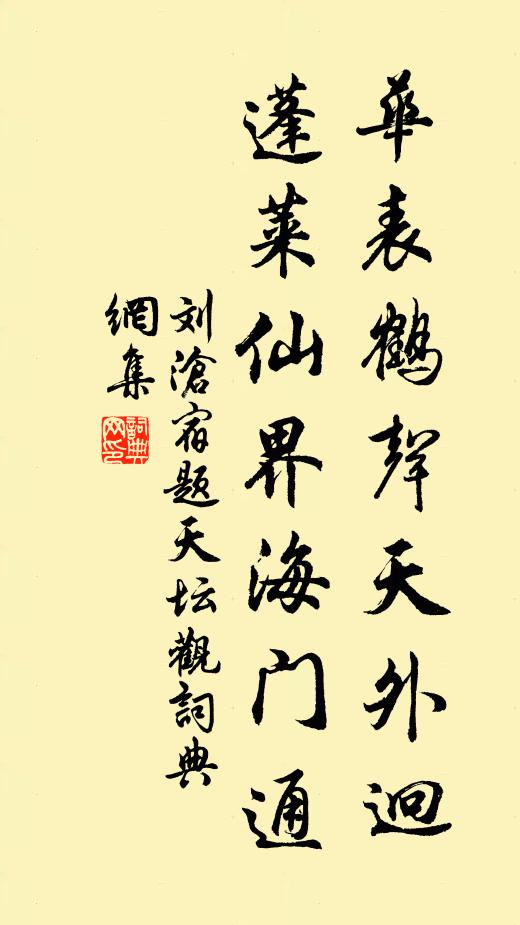 華表鶴聲天外迴
蓬萊仙界海门通
刘滄宿题天坛觀詞典
網集
詞典網印